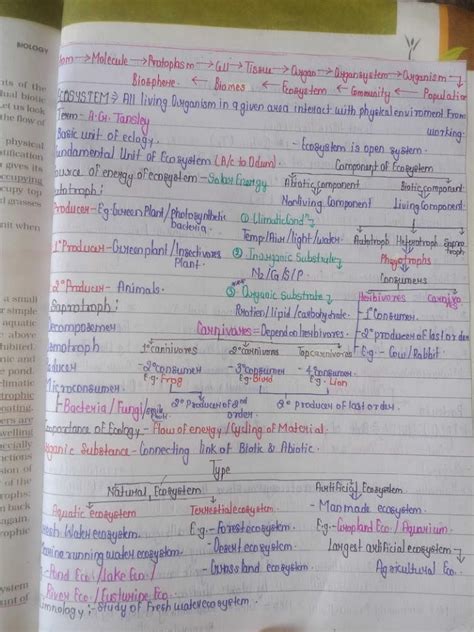 BIOLOGY
tom → Molecule → Protoplasm → Cell → Tissue → Organ → Organsystem → Organism
Biosphere ← Biomes ← Ecosystem ← Community ← Population
ECOSYSTEM ⇒ All living Organism in a given area interact with physical enviroment from
working.
Term - A.G. Tansley
Basic unit of eclogy.
- Ecosystem is open system.
undamental Unit of Ecosystem (A/c to Odum).
Component of Ecosystem
ource of energy of ecosystem - Solar Energy
Abiotic component
Biotic component
Nonliving Component
Living Component
utotroph:
Producer - Eg: Green Plant / photosynthetic
bacteria.
① Climatic Cond^n
Temp/Air/light/water
Autotroph Heterotroph Saprotroph
1° Producer - Green plant / Insectivores
Plant.
② Inorganic Substrate
N₂/C/S/P.
Phagotrophs
Consumers
2° Producer - Animals.
③ Organic Substrate
Protien/lipid/carbohydrate.
Herbivores
- 1° Consumer.
- 2° producer of last order
- Eg:- Cow/Rabbit.
Saprotroph:
Decomposer
Carnivores = Depend on herbivores.
smotroph
1° carnivores 2° carnivores Top carnivores
educer
-2° consumer -3° consumer -4° consumer
Microconsumer
Eg: Frog Eg: Bird Eg: Lion
Bacteria / Fungi /
2° Producer of 2nd
order
2° producer of last order
mportance of Ecology - Flow of energy / Cycling of Material.
rganic Substance - Connecting link of Biotic & Abiotic.
Type
Natural Ecosystem
Artificial Ecosystem
Aquatic ecosystem
Terrestrial ecosystem
- Manmade ecosystem
resh Water ecosystem.
Eg:- Forest ecosystem
Eg:- Cropland Eco / Aquarium.
arine running water ecosystem
- Desert ecosystem
Largest artificial ecosystem
- Pond Eco / Lake Eco /
- Grassland ecosystem
Agricultural Eco.
River Eco /
mnology:- Study of Fresh water ecosystem.